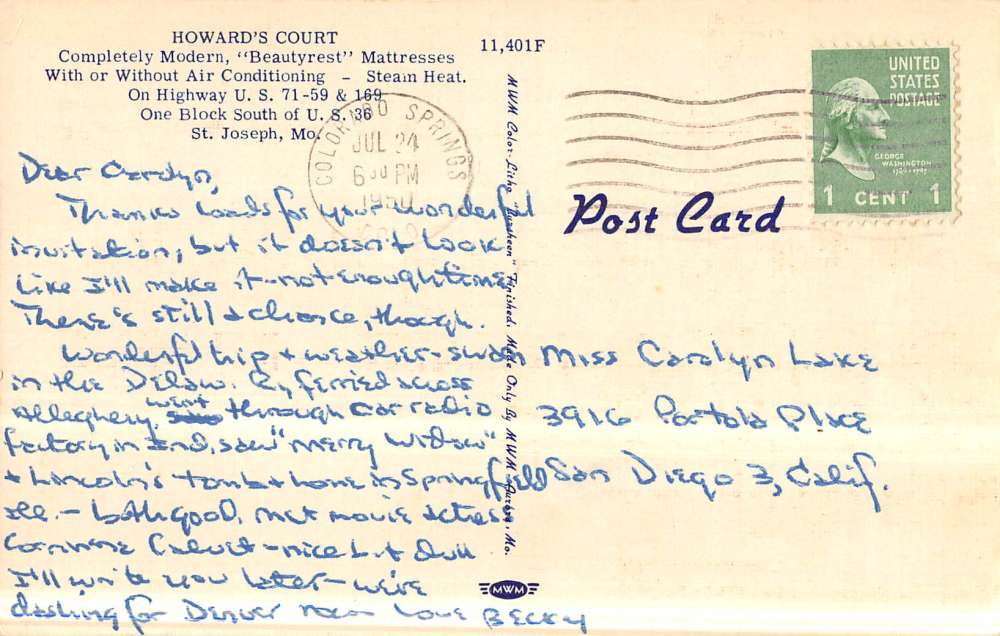 HOWARD'S COURT
Completely Modern, "Beautyrest" Mattresses
With or Without Air Conditioning - Steam Heat.
On Highway U. S. 71-59 & 169
One Block South of U. S. 36
St. Joseph, Mo.
11,401F
COLORADO SPRINGS
JUL 24
6 PM
1950
COLO
UNITED
STATES
POSTAGE
GEORGE
WASHINGTON
1 CENT 1
Post Card
MWM Color-Litho "Finished. Made Only By MWM Aurora, Mo.
Dear Carolyn,
Thanks loads for your wonderful
invitation, but it doesn't look
like I'll make it - not enough time
There's still a chance, though.
Wonderful trip & weather - swam
in the Delaw. R., ferried across
Allegheny, went through car radio
factory in Ind., saw "Merry Widow"
& Lincoln's tomb & home in Springfield
Ill. - both good. Met movie actress
Corrinne Calvet - nice but dull
I'll write you later - we're
dashing for Denver now Love BECKY
Miss Carolyn Lake
3916 Portola Place
San Diego 3, Calif.
MWM